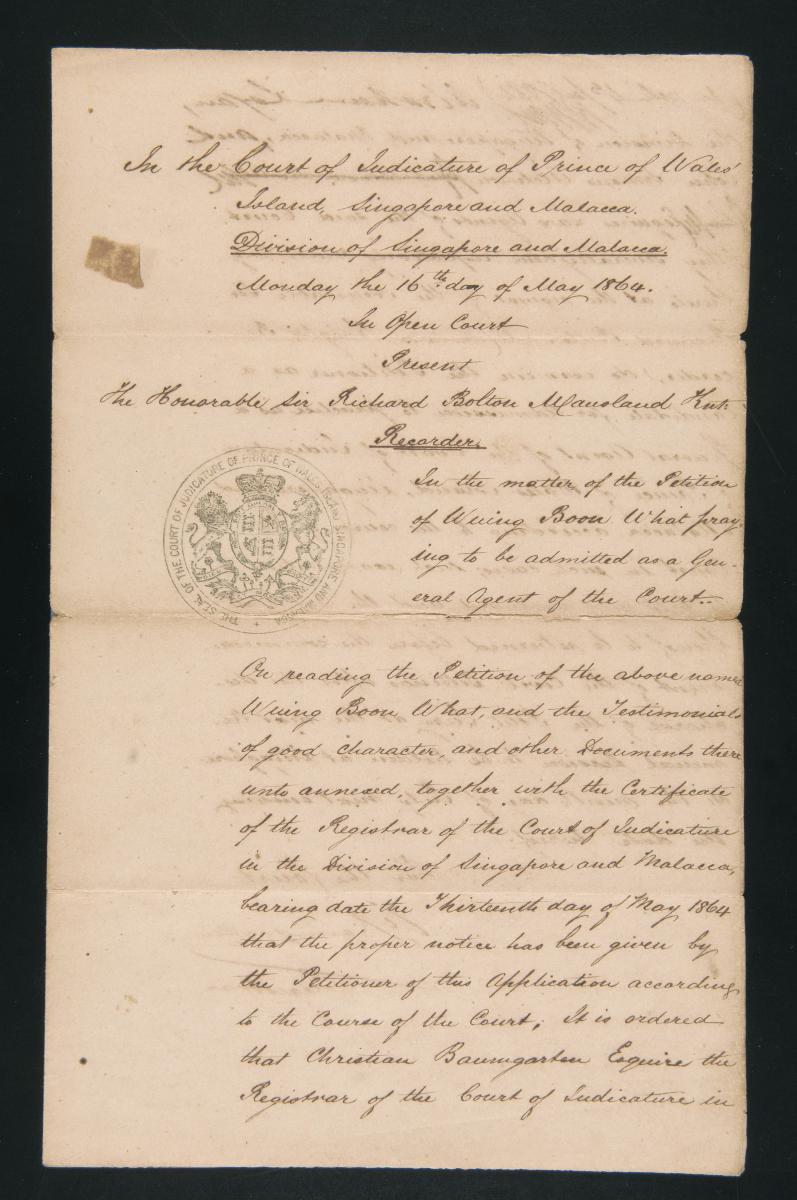 In the Court of Judicature of Prince of Wales'
Island, Singapore and Malacca.
Division of Singapore and Malacca.
Monday the 16th day of May 1864.
In Open Court
Present
The Honorable Sir Richard Bolton Mausland Knt.
Recorder.
THE SEAL OF THE COURT OF JUDICATURE OF PRINCE OF WALES ISLAND SINGAPORE AND MALACCA
In the matter of the Petition
of Wuing Boon What pray-
ing to be admitted as a Gen-
eral Agent of the Court.
On reading the Petition of the above named
Wuing Boon What, and the Testimonials
of good character, and other Documents there
unto annexed, together with the Certificate
of the Registrar of the Court of Judicature
in the Division of Singapore and Malacca,
bearing date the Thirteenth day of May 1864
that the proper notice has been given by
the Petitioner of this Application according
to the Course of the Court; It is ordered
that Christian Baumgarten Esquire the
Registrar of the Court of Judicature in